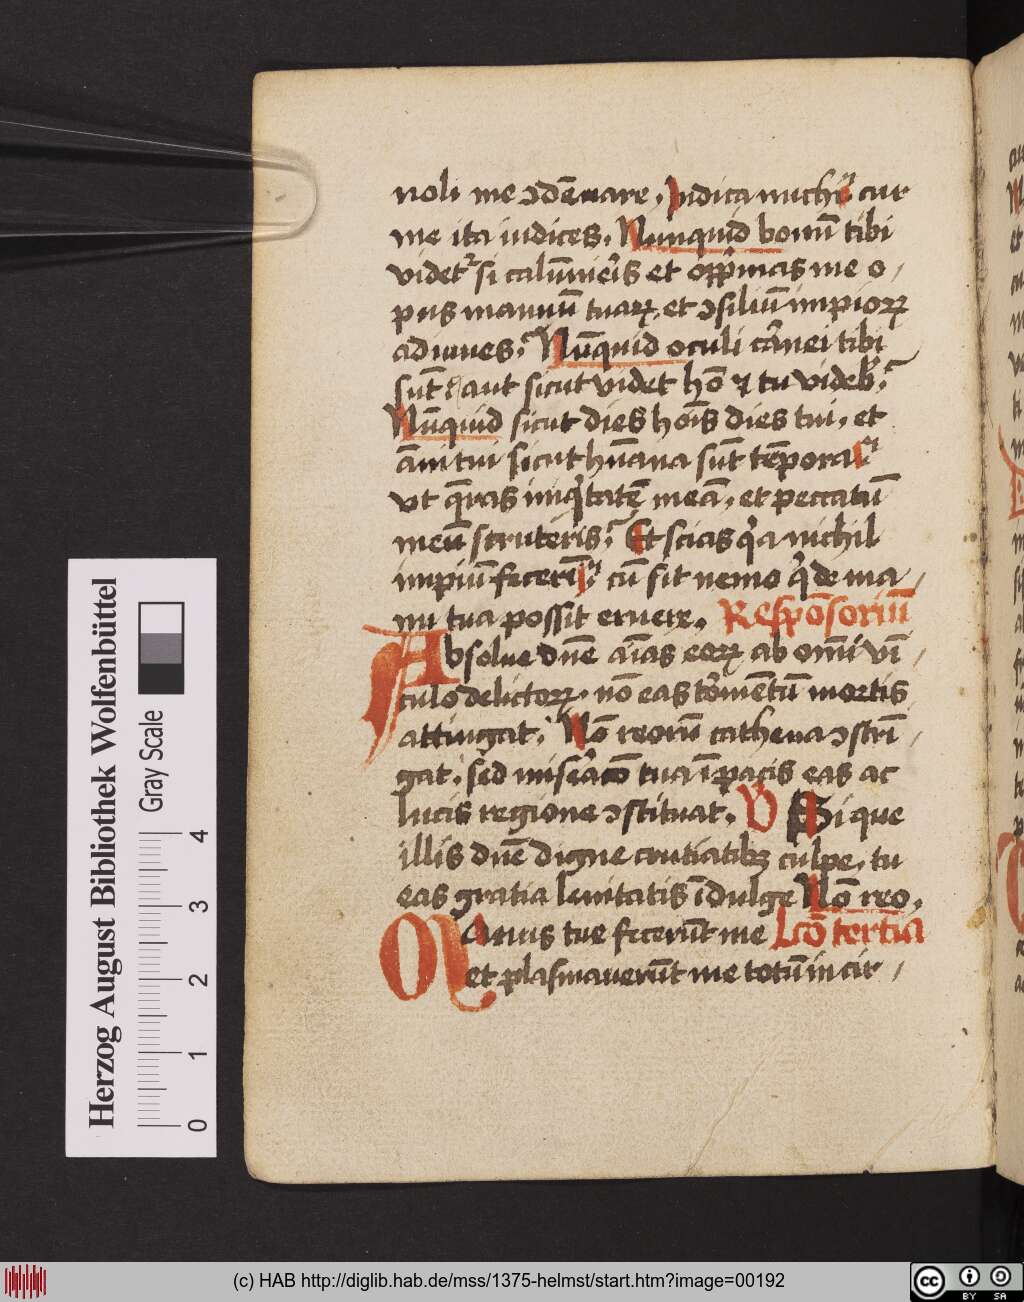 noli me ↄdēnare. Indica michi cur
me ita iudices. Nunquid bonū tibi
videt᷑ si calūnieris et opp̄mas me o/
pus manuū tuaꝝ, et ↄsiliū impioꝝ
adiuues. Nūquid oculi carnei tibi
sūt aut sicut videt hō ⁊ tu videb̄.
Nūquid sicut dies hoīs dies tui, et
āni tui sicut hūana sūt tēpora
vt q̄ras iniq̇tatē meā, et peccatū
meū scruteris. Et scias qͥa nichil
impiū fecerī. cū sit nemo qͥ de ma/
nu tua possit eruere. Respōsoriū
Absolue dn̄e aīas eoꝝ ab omī vī/
culo delictoꝝ. nō eas tormētū mortis
attingat. Nō reorū cathena ↄstrī/
gat. sed miseracō tua ī pacis eas ac
lucis regione ↄstituat. V Si que
illis dn̄e digne cruciatibꝫ culpe, tu
eas gratia lenitatis īdulge Nō reo.
Manus tue fecerūt me Lcō tertia
et plasmauerūt me totū in cir/
Herzog August Bibliothek Wolfenbüttel
Gray Scale
0 1 2 3 4
(c) HAB http://diglib.hab.de/mss/1375-helmst/start.htm?image=00192
cc BY SA